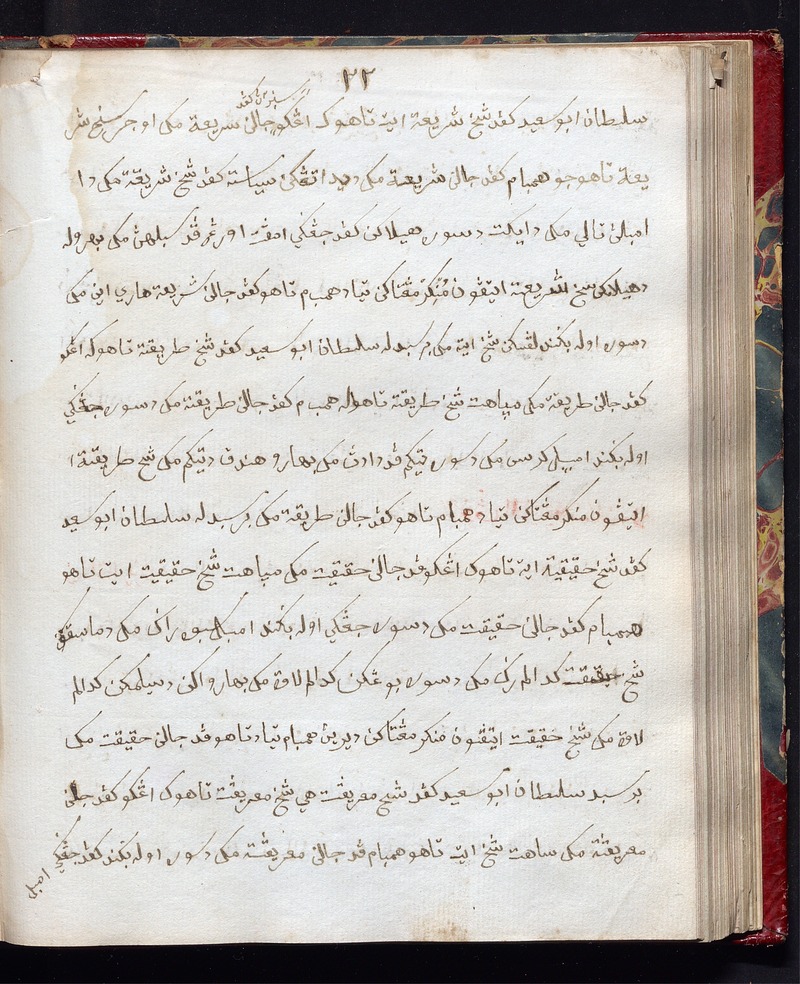 ٢٢
سلطان ابو سعيد كفد شيخ شريعة ايت تاهوك اڠكو جالن شريعة مك اوجر شيخ شر
يعة تاهو جو همبام كفد جالن شريعة مك دي سياسة كفد شيخ شريعة مك د ا
امبلن تالي مك د ايكت د سوره هيلاكن كفد جڠڬي امڤت اورڠ ڤد سبلهن مك بهروله
دهيلاكن شيخ الشريعة ايتڤون منكر مڠتاكن تياد همبام تاهو كفد جالن شريعة هاري اين مك
دسوره اوله بڬند لڤسكن شيخ ايت مك برسبد له سلطان ابو سعيد كفد شيخ طريقة تاهوكه اڠكو
كفد جالن طريقة مك سباهت شيخ طريقة تاهوله همبام كفد جالن طريقة مك دسوره جڠڬي
اوله بڬند امبيل كرسي مك دسوره تيكم ڤد دادن مك بهارو هندق دتيكم مك شيخ طريقة ا
ايتڤون منكر مڠتاكن تياد همبام تاهو كفد جالن طريقة مك برسبد له سلطان ابو سعيد
كفد شيخ حقيقة ايت تاهوك اڠكو ڤد جالن حقيقت مك سباهت شيخ حقيقيت ايت تاهو
همبام كفد جالن حقيقت مك دسوره جڠڬي اوله بڬند امبل بوه راڬ مك دماسقكن
شيخ حقيقت كدالم راڬ مك دسوره بوڠكن كدالم لاوت مك بهارو اكن دسيلمكن كدالم
لاوت مك شيخ حقيقت ايتڤون منكر مڠتاكن ديرين همبام تياد تاهو ڤد جالن حقيقت مك
برسبد سلطان ابو سعيد كفد شيخ معريفت هي شيخ معريفت تاهوك اڠكو كفد جالن
معريفة مك سباهت شيخ ايت تاهو همبام ڤد جالن معريفة مك دسوره اوله بڬند كفد جڠڬي
امبل